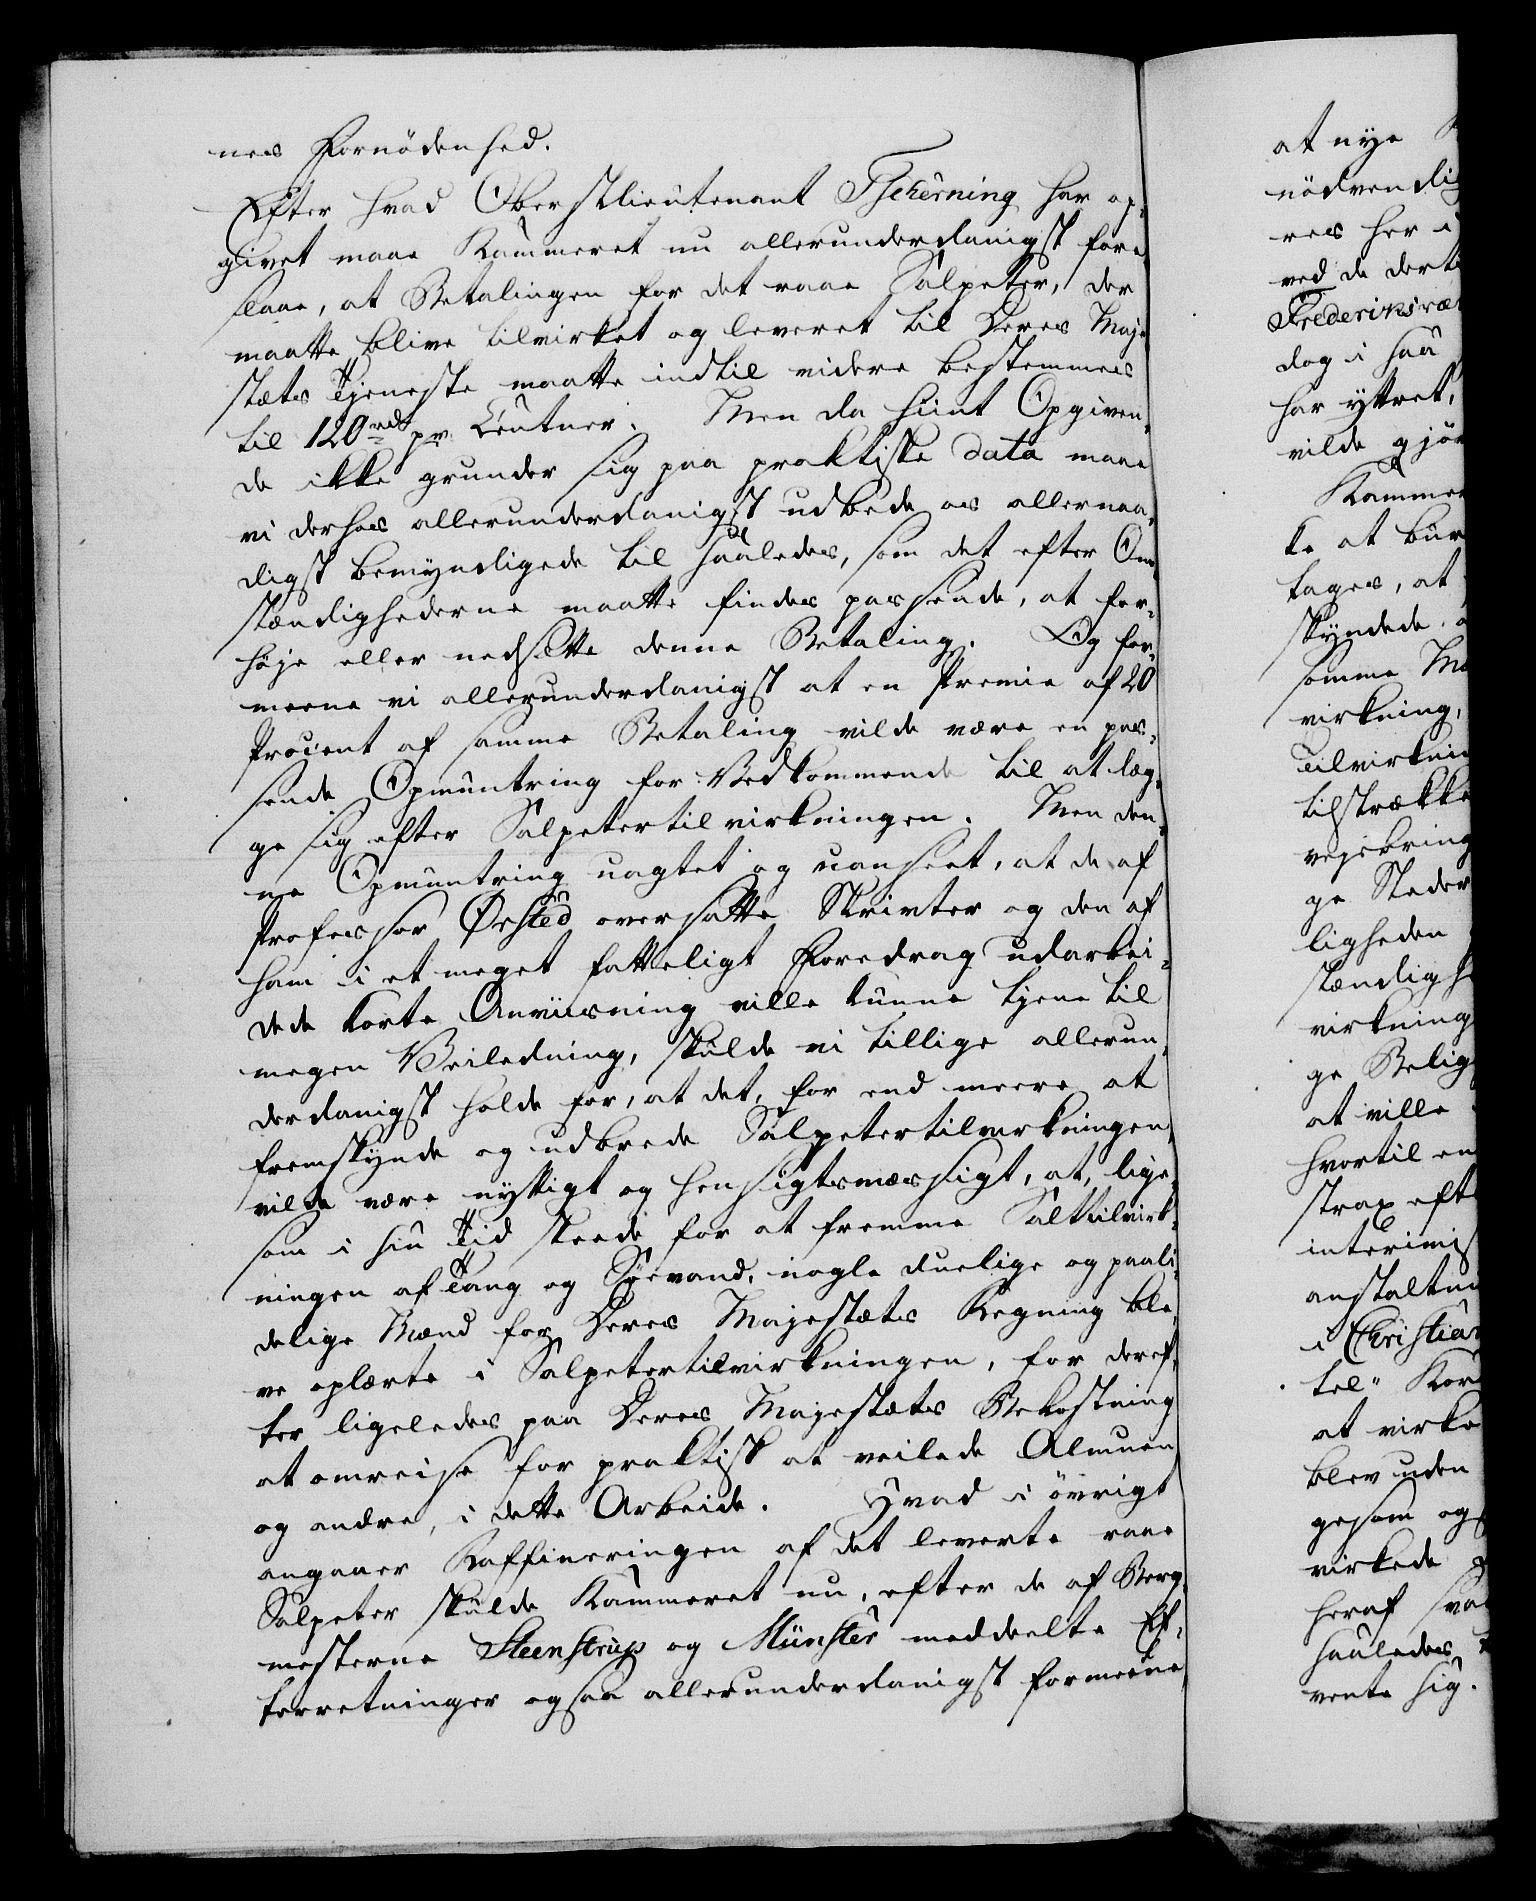 nes Fornödenhed.
Efter hvad Oberstlieutenant Tscherning har op-
givet maae Kammeret nu allerunderdanigst fore
slaae, at Betalingen for det raae Salpeter, der
maatte blive tilvirket og leveret til Deres Maje
stæts Tjeneste maatte indtil videre bestemmes
til 120 rd pr Centner. Men da hiint Opgiven-
de ikke grunder sig paa praktiske data maae
vi derhos allerunderdanigst udbede os allernaa-
digst bemyndigede til saaledes, som det efter Om
stændighederne maatte findes passende, at for-
höje eller nedsætte denne Betaling. Og for-
meene vi allerunderdanigst at en Premie af 20
Procent af samme Betaling vilde være en pas-
sende Opmuntring for Vedkommende til at læg-
ge sig efter Salpetertilvirkningen. Men den-
ne Opmuntring uagtet og uanseet, at de af
Professor Ørsted oversatte Skrivter og den af
ham i et meget fatteligt Foredrag udarbei-
dede korte Anviisning ville kunne tjene til
megen Veiledning, skulde vi tillige allerun-
derdanigst holde for, at det, for end meere at
fremskynde og udbrede Salpetertilvirkningen,
vilde være nyttigt og hensigtsmæssigt, at, lige-
som i sin Tid skeede for at fremme Salttilvirk-
ningen af Tang og Søevand, nogle duelige og paali-
delige Mænd for Deres Majestæts Regning ble
ve oplærte i Salpetertilvirkningen, for deref-
ter ligeledes paa Deres Majestæts Bekostning
at omreise for praktisk at veilede Almuen
og andre, i dette Arbeide. Hvad i övrigt
angaaer Raffineringen af det leverte raae
Salpeter skulde Kammeret nu, efter de af Berg
mesterne Steenstrup og Münster meddeelte Ef-
terretninger ogsaa allerunderdanigst formeene
at nye
nödvendig
res her i
ved de derti
Frederiksvær
dog i saa
har yttret,
vilde gjör
Kammer
te at bur
tages, at
skyndede
somme Ma
virkning,
Tilvirknin
tilstrække
vejebring
ge Steder
ligheden
stændighe
virkning
ge Belig
at ville
hvortil en
strax eft
interimis
anstaltni
i Christian
tel" Kor
at virke
blev uden
gesom og
virkede
heraf sva
saaledes
vente sig.